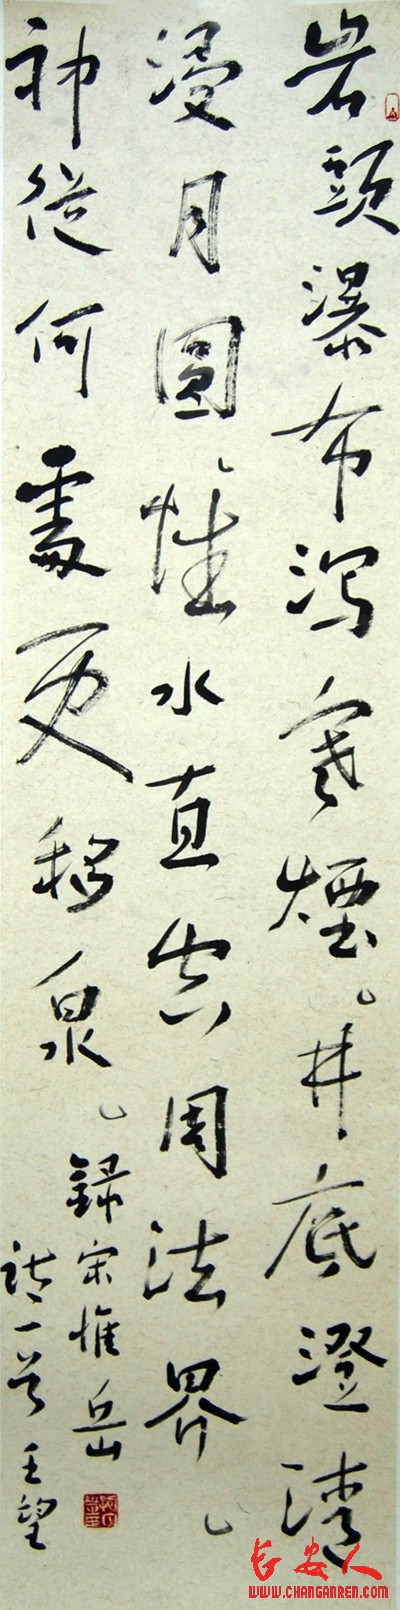 岩頭瀑布瀉寒煙井底澄清
浸月圓性水真空周法界
神從何處更移泉
錄宋惟岳
詩一首王望
长安人
WWW.CHANGANREN.COM